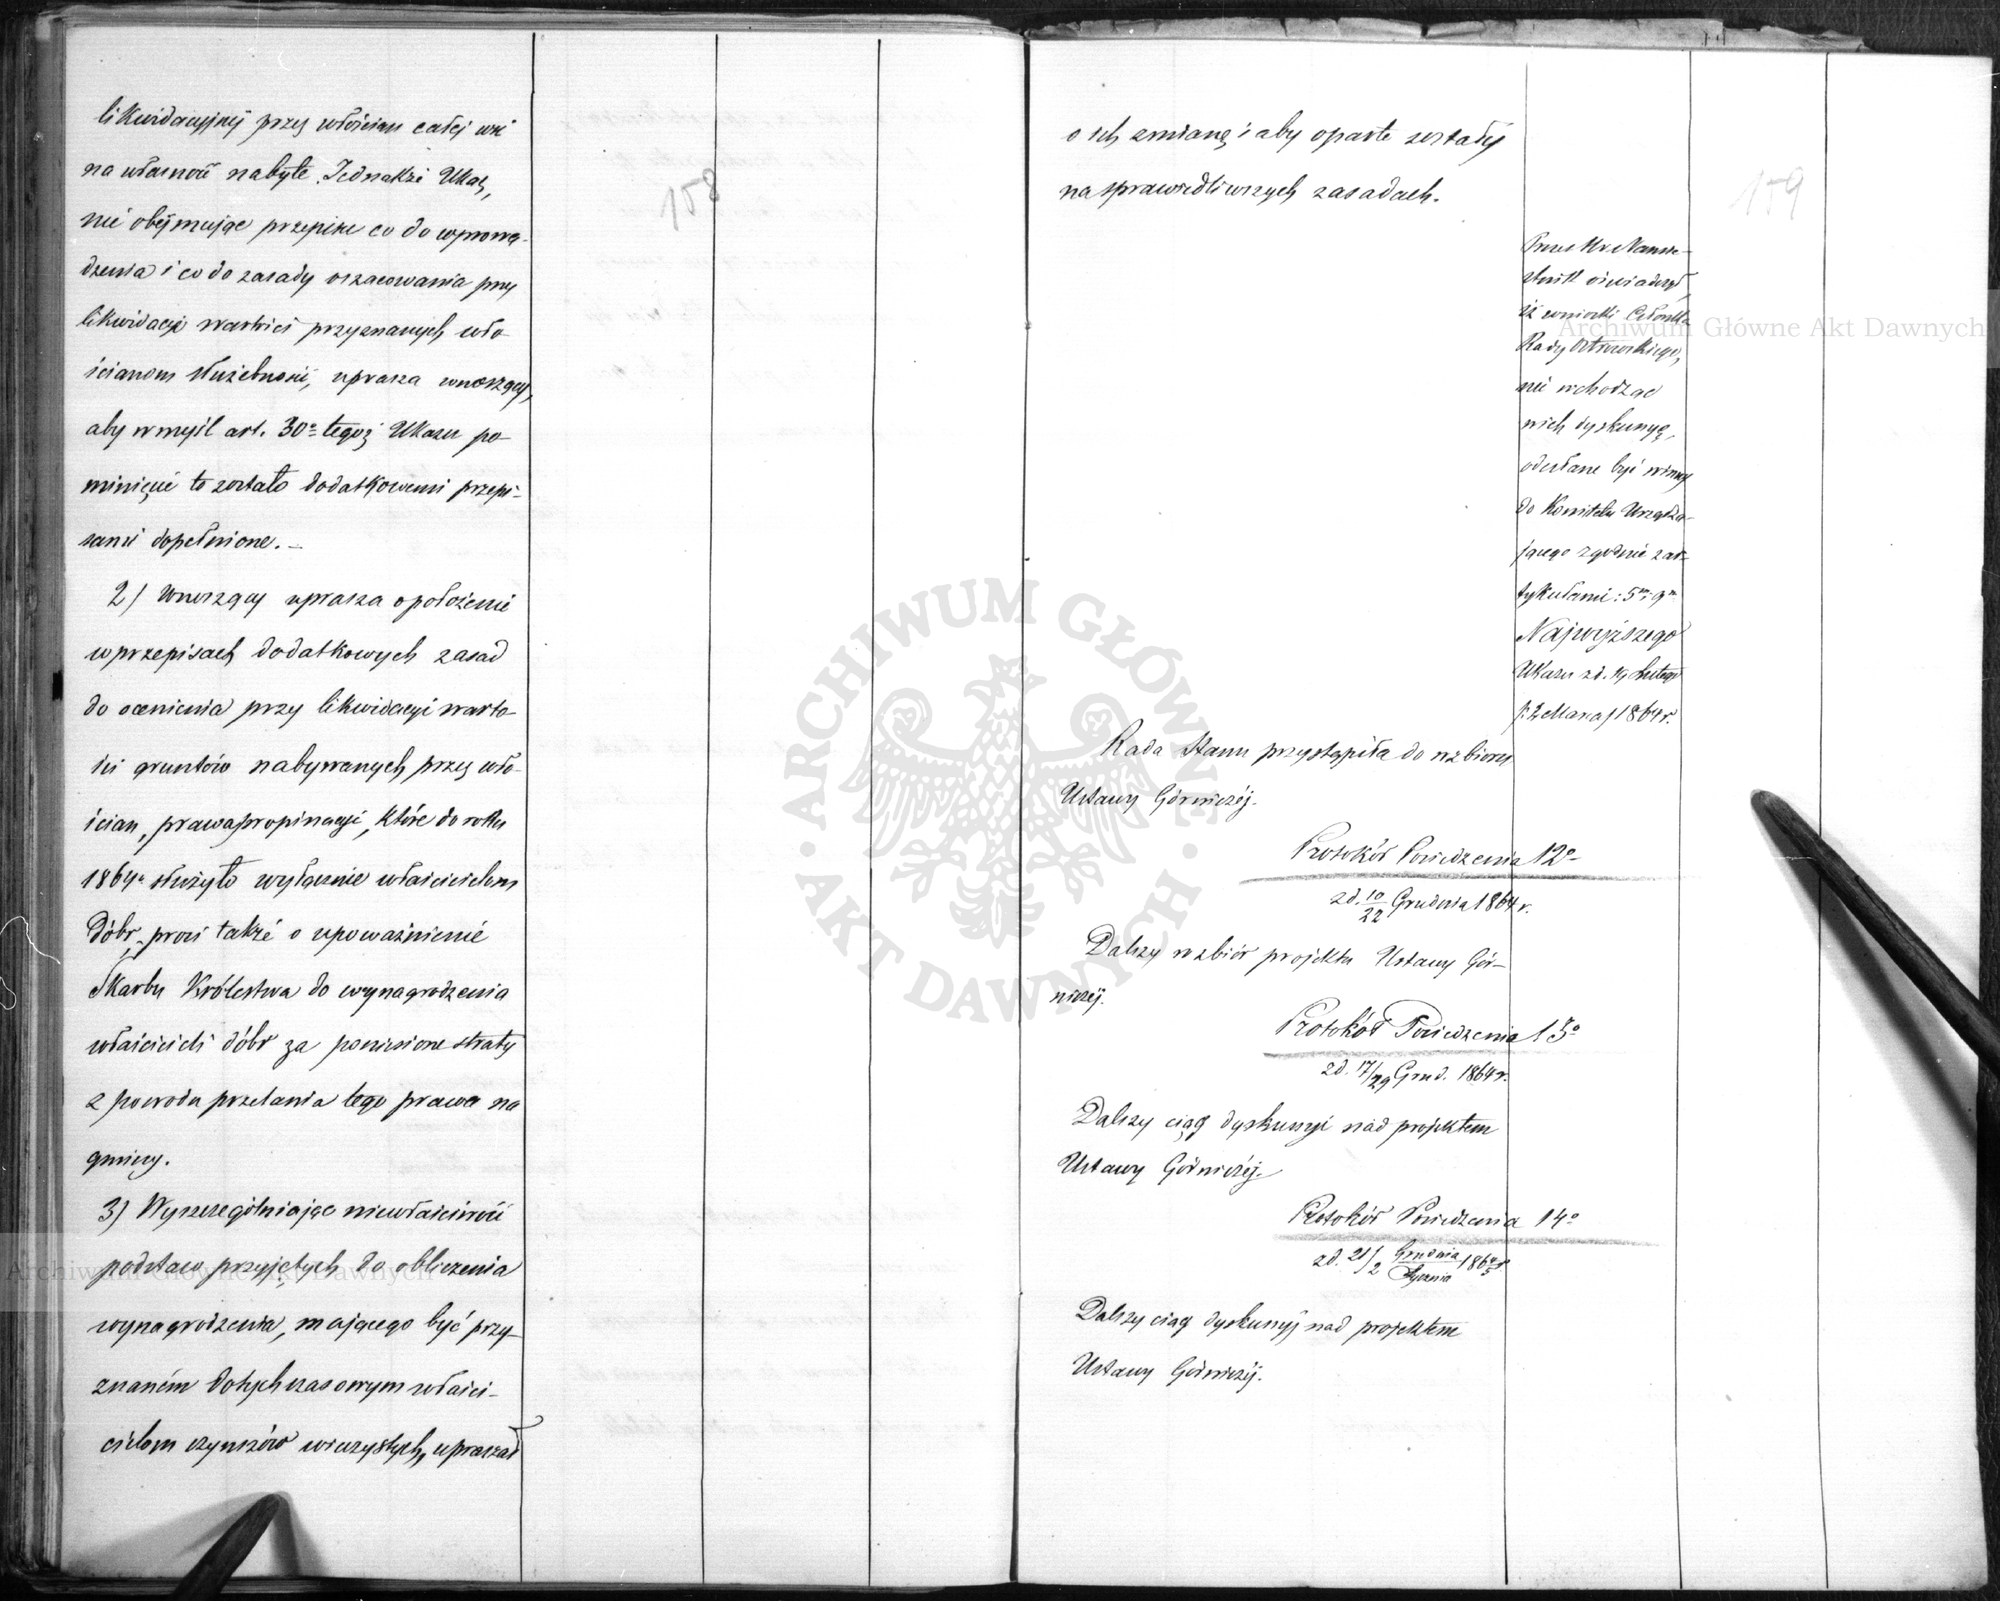 158
likwidacyjnéj przez włościan całéj wsi
na własność nabyte. Jednakże Ukaz,
nie obejmując przepisu co do wprowa-
dzenia i co do zasady oszacowania przy
likwidacyi wartości przyznanych wło-
ścianom służebności, uprasza wnoszący,
aby w myśl art. 30º tegoż Ukazu po-
minięcie to zostało dodatkowemi przepi-
sami dopełnione. –
2) Wnoszący uprasza o położenie
w przepisach dodatkowych zasad
do ocenienia przy likwidacyi warto-
ści gruntów nabywanych przez wło-
ścian, prawa propinacyi, które do roku
1864º służyło wyłącznie właścicielom
Dóbr, prosi także o upoważnienie
Skarbu Królestwa do wynagrodzenia
właścicieli dóbr za poniesione straty
z powodu przelania tego prawa na
gminy.
3) Wyszczególniając niewłaściwość
podstaw przyjętych do obliczenia
wynagrodzenia, mającego być przy-
znaném dotychczasowym właści-
cielom czynszów wieczystych, upraszał
159
o ich zmianę i aby oparte zostały
na sprawiedliwszych zasadach.
Prezes Hr. Namie-
stnik oświadczył,
iż wnioski Członka
Rady Ostrowskiego,
nie wchodząc
w ich dyskusyę,
odesłane być winny
do Komitetu Urządza-
jącego zgodnie z ar-
tykułami: 5m i 9m
Najwyższego
Ukazu z d. 19 Lutego
/: 2 Marca / 1864 r.
Rada Stanu przystąpiła do rozbioru
Ustawy Górniczéj.
Protokół Posiedzenia 12º
z d. 10/22 Grudnia 1864 r.
Dalszy rozbiór projektu Ustawy Gór-
niczéj.
Protokół Posiedzenia 13º
z d. 17/29 Grud. 1864 r.
Dalszy ciąg dyskusyi nad projektem
Ustawy Górniczéj.
Protokół Posiedzenia 14º
z d. 21/2 Grudnia/Stycznia 1864/5 r.
Dalszy ciąg dyskusyj nad projektem
Ustawy Górniczéj.
Archiwum Główne Akt Dawnych
Archiwum Główne Akt Dawnych
ARCHIWUM GŁÓWNE · AKT DAWNYCH ·